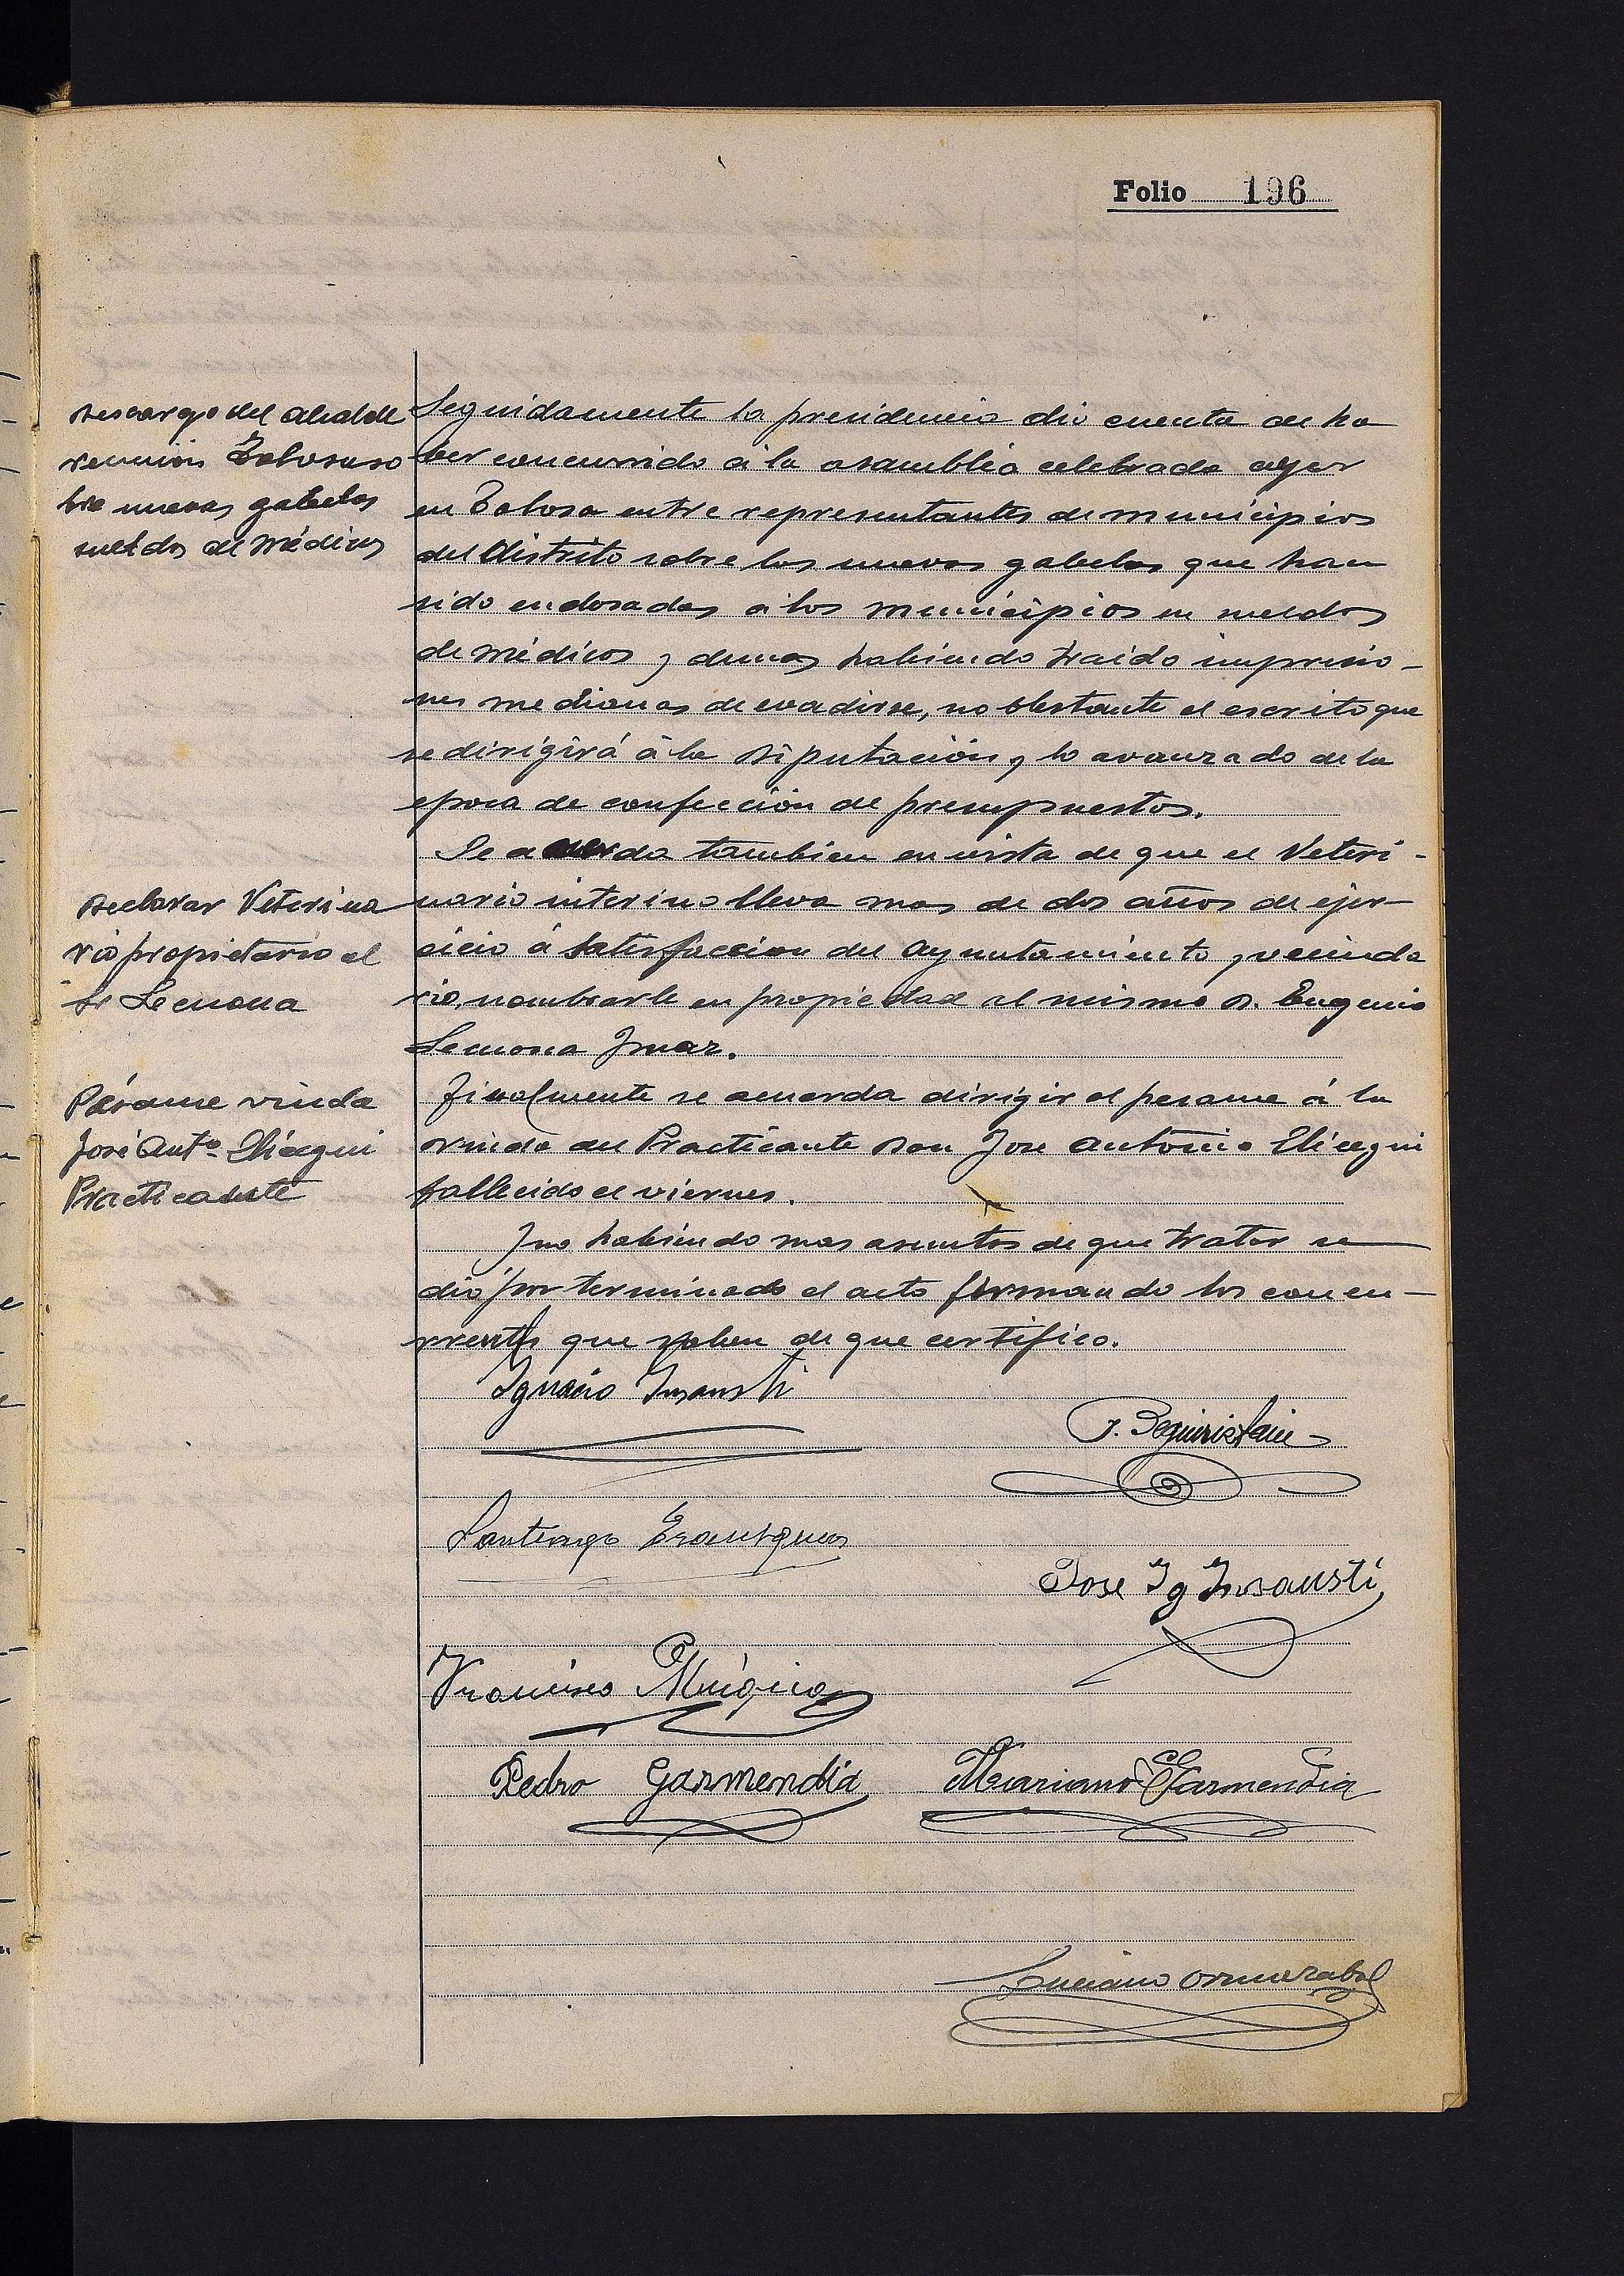 Folio 196
Descargo del alcalde
reunion Tolosa so
bre nuevas gabelas
sueldos de médicos
Seguidamente la presidencia dio cuenta de ha
ber concurrido á la asamblea celebrada ayer
en Tolosa entre representantes de municipios
del Distrito sobre las nuevas gabelas que han
sido endosadas a los municipios en sueldos
de médicos y demas habiendo traido impresio-
nes medianas de evadirse, no obstante el escrito que
se dirigirá á la Diputación y lo avanzado de la
epoca de confección de presupuestos.
Se acuerda tambien en vista de que el Veteri-
Declarar Veterina
rio propietario al
Sr Lemona
nario interino lleva mas de dos años de ejer-
cicio á satisfaccion del Ayuntamiento y vecinda
rio, nombrarle en propiedad al mismo D. Eugenio
Lemona
Pésame viuda
José Antº Elicegui
Practicante
Finalmente se acuerda dirigir el pesame á la
viuda del Practicante Don Jose Antonio Elicegui
fallecido el viernes.
Y no habiendo mas asuntos de que tratar se
dio por terminado el acto firmando los concu-
rrentes que saben de que certifico.
Ignacio Insausti
J. Beguiristain
Santiago
Jose Ig Insausti
Francisco Múgica
Pedro Garmendia
Mariano Garmendia
Luciano Ormazabal